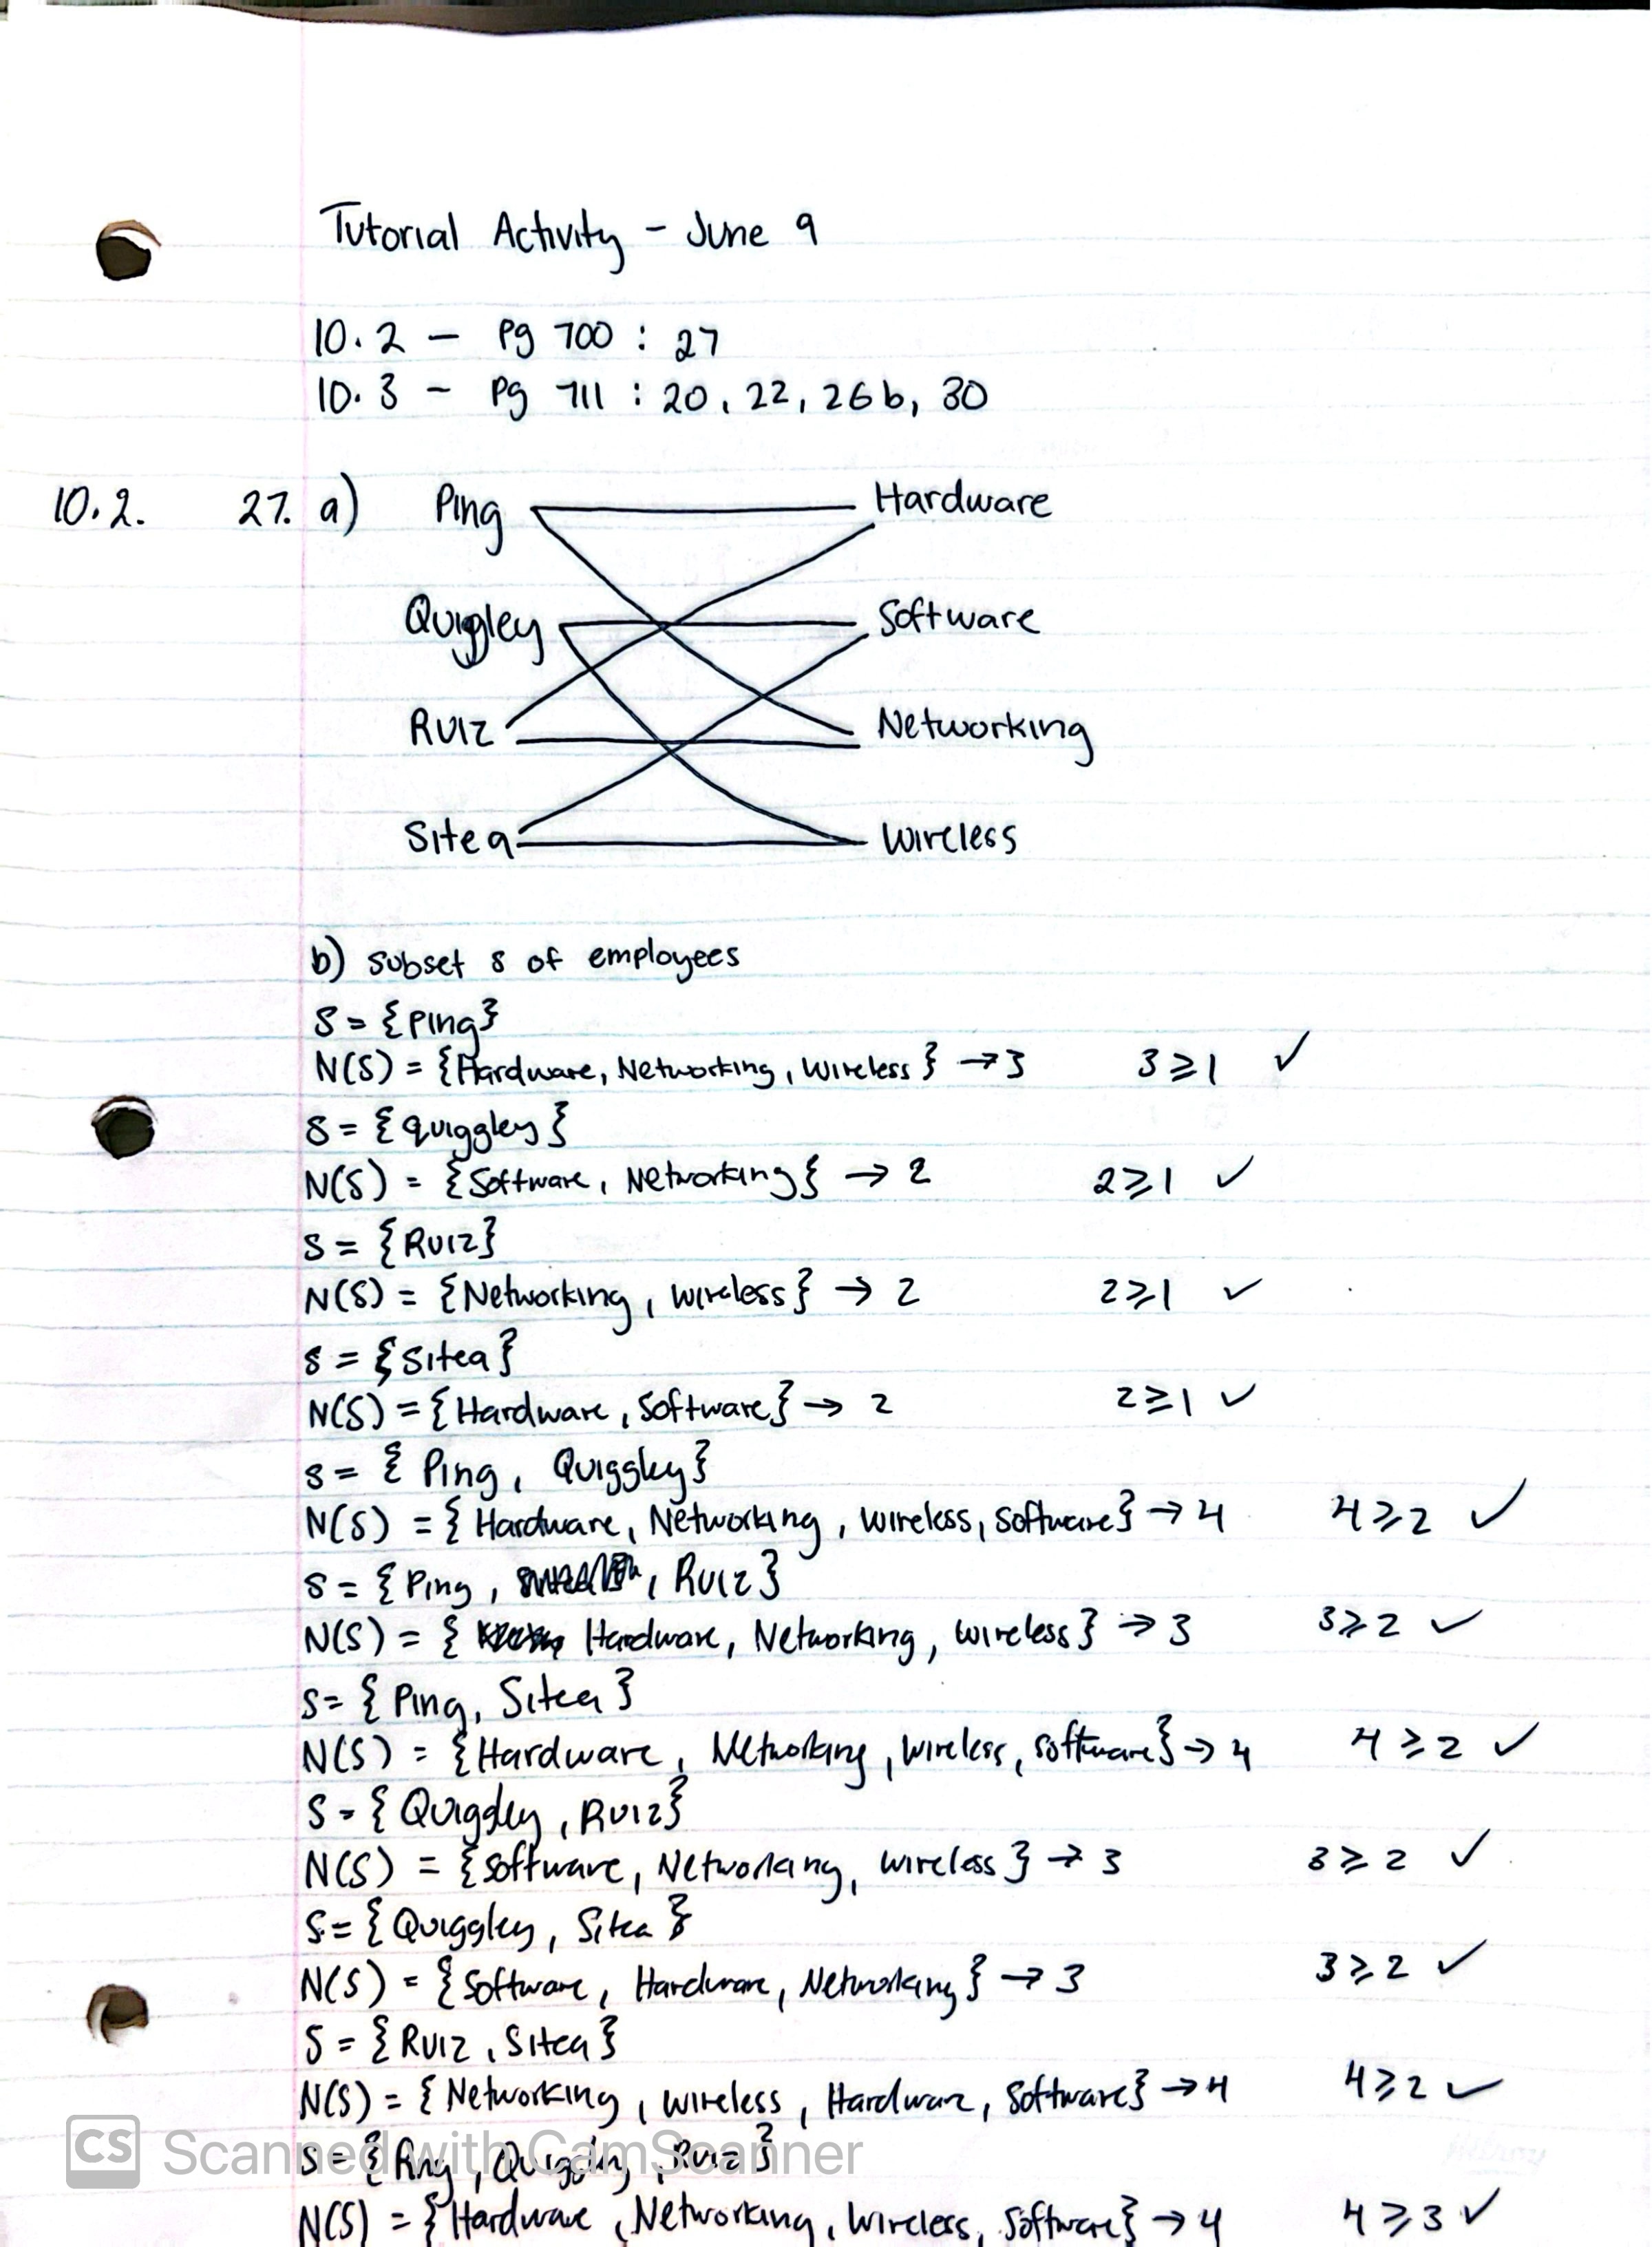 Tutorial Activity - June 9
10.2 - Pg 700 : 27
10.3 - Pg 711 : 20, 22, 26b, 30
10.2. 27. a) Ping Hardware
Quiggley Software
Ruiz Networking
Sitea Wireless
b) subset s of employees
S = {Ping}
N(S) = {Hardware, Networking, Wireless} → 3 3 ≥ 1 ✓
S = {quiggley}
N(S) = {Software, Networking} → 2 2 ≥ 1 ✓
S = {Ruiz}
N(S) = {Networking, wireless} → 2 2 ≥ 1 ✓
S = {Sitea}
N(S) = {Hardware, Software} → 2 2 ≥ 1 ✓
S = {Ping, Quiggley}
N(S) = {Hardware, Networking, wireless, software} → 4 4 ≥ 2 ✓
S = {Ping, , Ruiz}
N(S) = { Hardware, Networking, wireless} → 3 3 ≥ 2 ✓
S = {Ping, Sitea}
N(S) = {Hardware, Networking, wireless, software} → 4 4 ≥ 2 ✓
S = {Quiggley, Ruiz}
N(S) = {software, Networking, wireless} → 3 3 ≥ 2 ✓
S = {Quiggley, Sitea}
N(S) = {Software, Hardware, Networking} → 3 3 ≥ 2 ✓
S = {Ruiz, Sitea}
N(S) = {Networking, wireless, Hardware, Software} → 4 4 ≥ 2 ✓
S = {Ping, Quiggley, Ruiz}
N(S) = {Hardware, Networking, wireless, Software} → 4 4 ≥ 3 ✓
CS Scanned with CamScanner